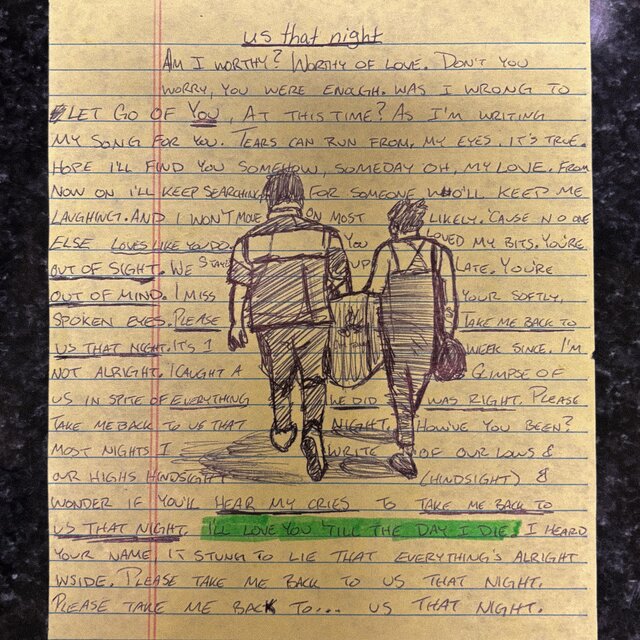 us that night
AM I WORTHY? WORTHY OF LOVE. DON'T YOU
WORRY, YOU WERE ENOUGH. WAS I WRONG TO
LET GO OF YOU, AT THIS TIME? AS I'M WRITING
MY SONG FOR YOU. TEARS CAN RUN FROM, MY EYES. IT'S TRUE.
HOPE I'LL FIND YOU SOMEHOW, SOMEDAY OH, MY LOVE. FROM
NOW ON I'LL KEEP SEARCHING, FOR SOMEONE WHO'LL KEEP ME
LAUGHING. AND I WON'T MOVE ON MOST LIKELY. 'CAUSE NO ONE
ELSE LOVES LIKE YOU DO. YOU LOVED MY BITS. YOU'RE
OUT OF SIGHT. WE STAYED UP LATE. YOU'RE
OUT OF MIND. I MISS YOUR SOFTLY,
SPOKEN EYES. PLEASE TAKE ME BACK TO
US THAT NIGHT. IT'S 1 WEEK SINCE. I'M
NOT ALRIGHT. I CAUGHT A GLIMPSE OF
US IN SPITE OF EVERYTHING WE DID WAS RIGHT. PLEASE
TAKE ME BACK TO US THAT NIGHT. HOW'VE YOU BEEN?
MOST NIGHTS I WRITE OF OUR LOWS &
OUR HIGHS HINDSIGHT (HINDSIGHT) &
WONDER IF YOU'LL HEAR MY CRIES TO TAKE ME BACK TO
US THAT NIGHT. I'LL LOVE YOU 'TILL THE DAY I DIE. I HEARD
YOUR NAME IT STUNG TO LIE THAT EVERYTHING'S ALRIGHT
INSIDE. PLEASE TAKE ME BACK TO US THAT NIGHT.
PLEASE TAKE ME BACK TO... US THAT NIGHT.